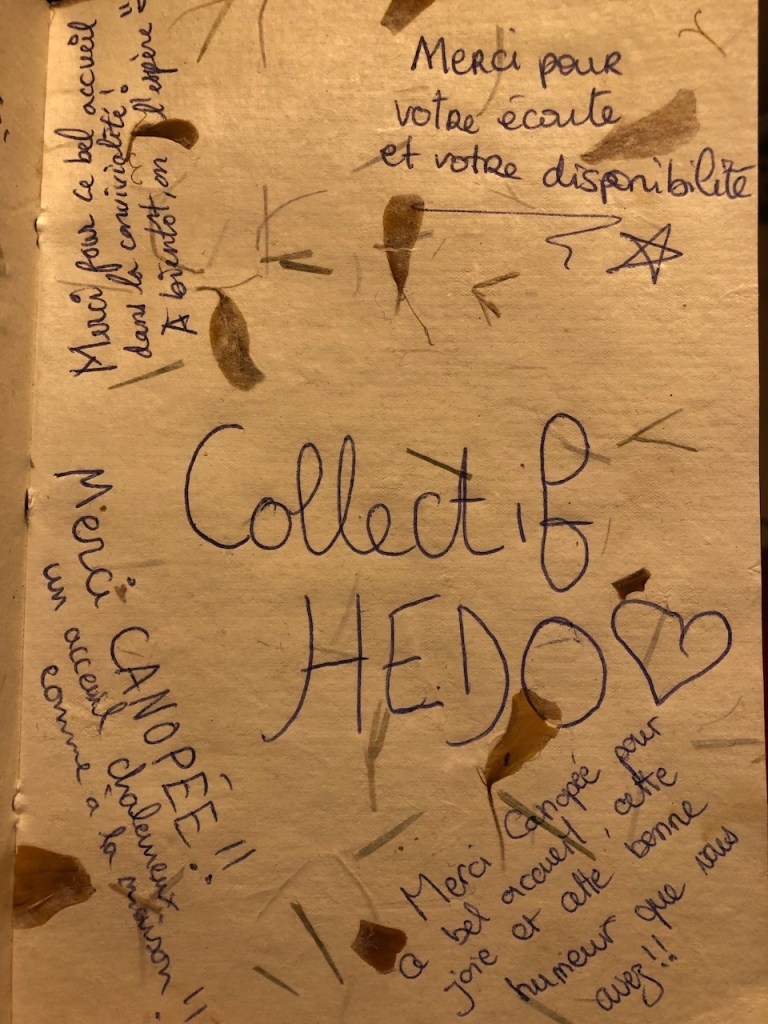 Merci pour ce bel accueil
dans la convivialité !
À bientôt, on l'espère "="
Merci pour
votre écoute
et votre disponibilité
Collectif
HEDO
Merci CANOPÉE !!
un acceuil chalement
comme à la maison !!
Merci Canopée pour
ce bel accueil, cette
joie et cette bonne
humeur que vous
avez !!